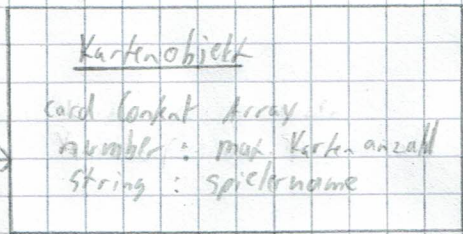 Kartenobjekt
card Content Array
number : max Kartenanzahl
string : spielername